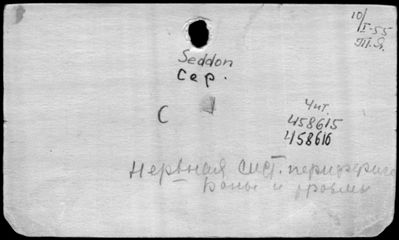 10/I-55
Т.Я.
Seddon
Сер.
С
Чит.
458615
458616
Нервная сист. перифери
Раны и травмы